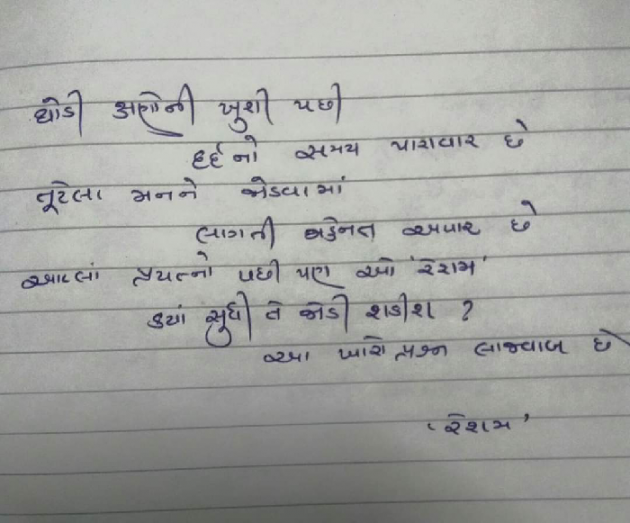 થોડી ક્ષણોની ખુશી પછી
દર્દનો સમય પારાવાર છે
તૂટેલા મનને જોડવામાં
લાગતી મહેનત અપાર છે
આટલાં પ્રયત્નો પછી પણ ઓ 'રેશમ'
કયાં સુધી તે જોડી શકીશ ?
આ મારો પ્રશ્ન લાજવાબ છે
'રેશમ'